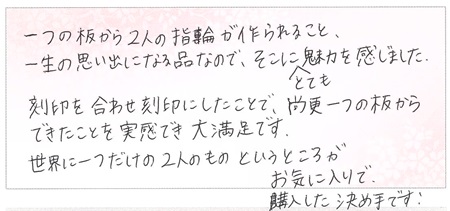 一つの板から2人の指輪が作られること、
一生の思い出になる品なので、そこに魅力を感じました.
とても
刻印を合わせ刻印にしたことで、尚更一つの板から
できたことを実感でき大満足です.
世界に一つだけの2人のもの というところが
お気に入りで.
購入した決め手です!